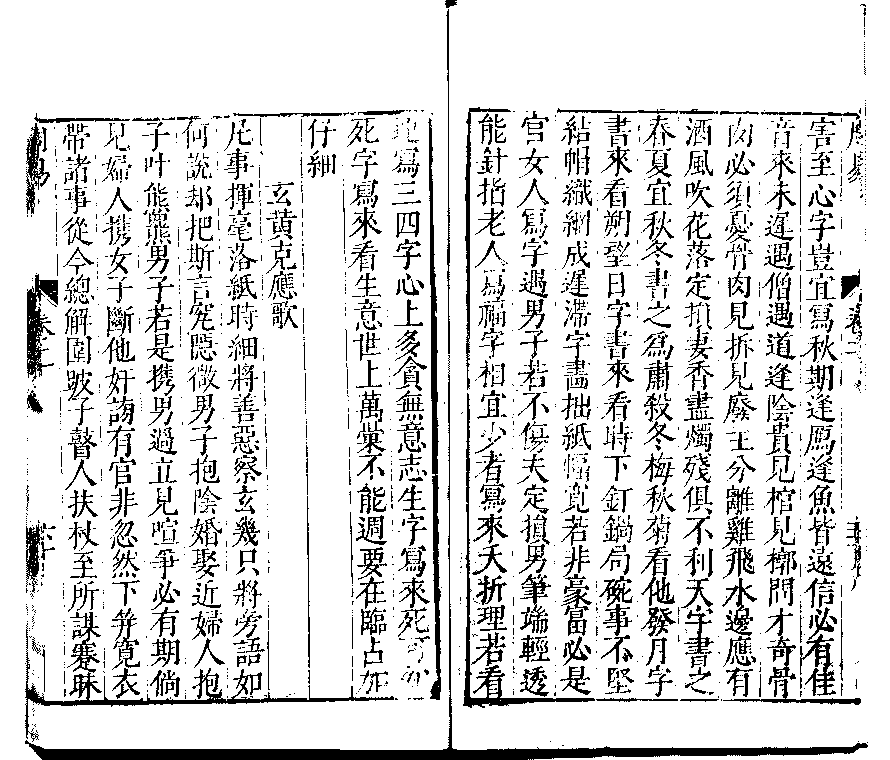 害至心字豈宜寫秋期逢鴈逢魚皆遠信必有佳
音來未遲遇僧遇道逢陰貴見棺見槨問才奇骨
肉必須憂骨肉見拆見廢主分離雞飛水邊應有
酒風吹花落定損妻香盡燭殘俱不利天字書之
春夏宜秋冬書之為肅殺冬梅秋菊看他發月字
書來看朔望日字書來看時下釘鍋局碗事不堅
結帽織網成遲滯字畫拙紙幅寬若非豪富必是
官女人寫字遇男子若不傷夫定損男筆端輕透
能針指老人寫福字相宜少者寫來夭折理若看
寫三四字心上多貪無意志生字寫來死
死字寫來看生意世上萬般不能週要在臨占如
仔細
玄黃克應歌
凡事揮毫落紙時細將善惡察玄幾只將旁語如
何說却把斯言究隱微男子抱陰婚娶近婦人抱
子叶熊羆男子若是携男過立見喧爭必有期倘
見婦人携女子斷他奸詭有官非忽然下筭寬衣
帶諸事從今總解圍跛子瞽人扶杖至所謀蹇
卷二
六十